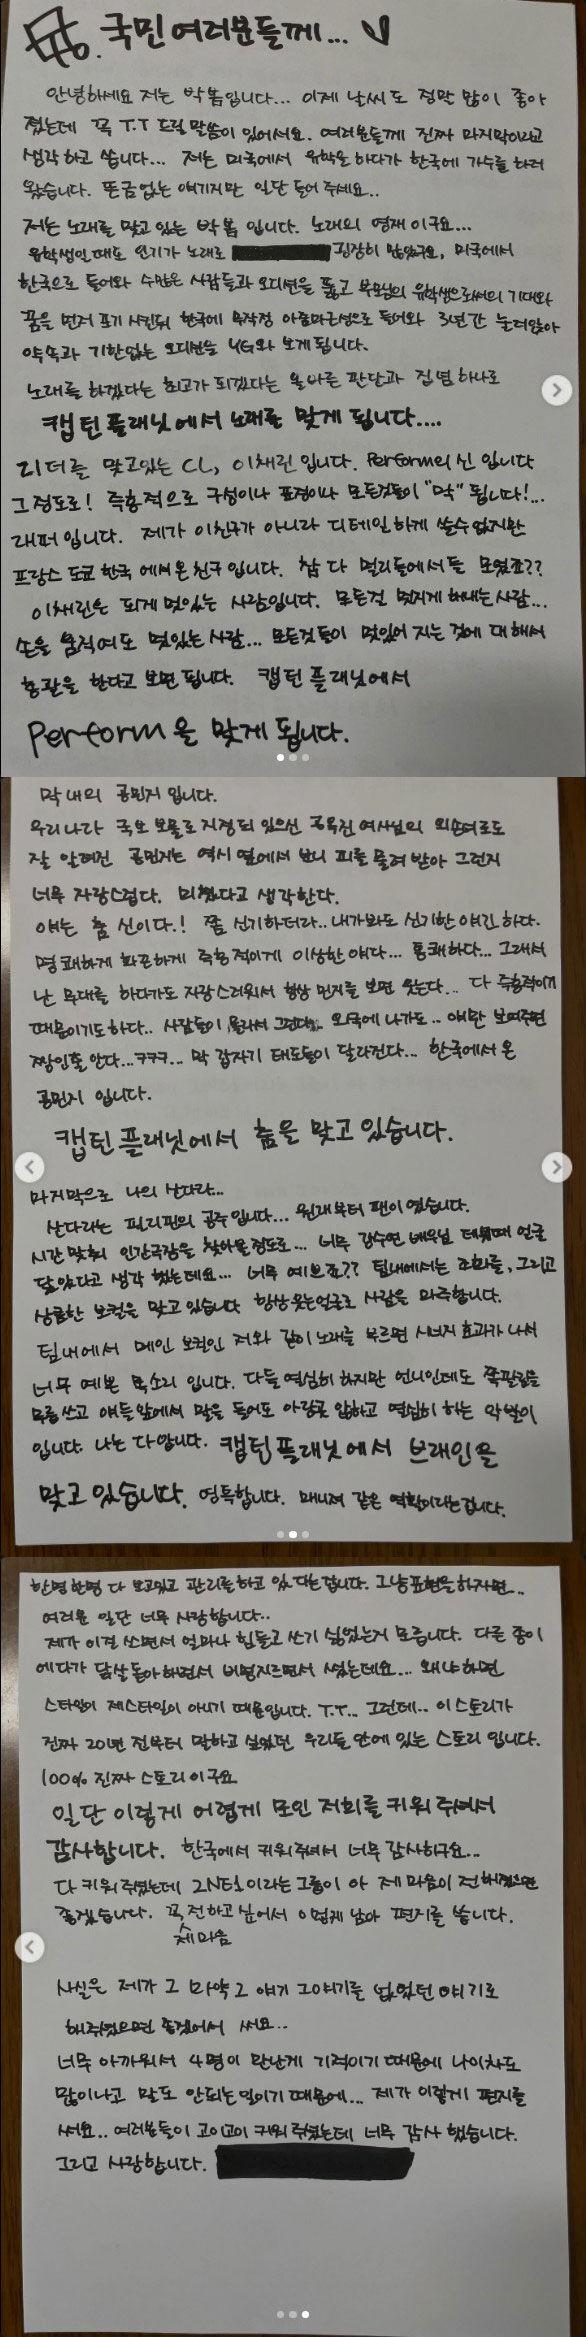 국민 여러분들께...
안녕하세요 저는 박봄입니다... 이제 날씨도 정말 많이 좋아
졌는데 꼭 T.T 드릴 말씀이 있어서요. 여러분들께 진짜 마지막이라고
생각하고 씁니다... 저는 미국에서 유학을 하다가 한국에 가수를 하러
왔습니다. 뜬금없는 얘기지만 일단 들어 주세요..
저는 노래를 맞고 있는 박봄 입니다. 노래의 영재 이구요...
유학생인 때도 인기가 노래로 굉장히 많았구요, 미국에서
한국으로 들어와 수많은 사람들과 오디션을 뚫고 부모님의 유학생으로서의 기대와
꿈을 먼저 포기 시킨뒤 한국에 무작정 아줌마근성으로 들어와 3년간 눌러앉아
약속과 기한없는 오디션을 YG와 보게 됩니다.
노래를 하겠다는 최고가 되겠다는 올바른 판단과 집념 하나로
캡틴 플래닛에서 노래를 맞게 됩니다....
리더를 맞고있는 CL, 이채린 입니다. Perform의 신 입니다
그 정도로! 즉흥적으로 구성이나 표정이나 모든것들이 "딱" 됩니다!...
래퍼 입니다. 제가 이친구가 아니라 디테일 하게 쓸수 없지만
프랑스 도쿄 한국 에서 온 친구 입니다. 참 다 멀리들에서들 모였죠??
이채린은 되게 멋있는 사람입니다. 모든걸 멋지게 해내는 사람...
손을 움직여도 멋있는 사람... 모든것들이 멋있어 지는 것에 대해서
총괄을 한다고 보면 됩니다. 캡틴 플래닛에서
Perform을 맞게 됩니다.
막내의 공민지 입니다.
우리나라 국보 보물로 지정되 있으신 공옥진 여사님의 외손녀로도
잘 알려진 공민지는 역시 옆에서 보니 피를 물려 받아 그런지
너무 자랑스럽다. 미쳤다고 생각한다.
얘는 춤 신이다.! 쫌 신기하더라.. 내가봐도 신기한 얘긴 하다.
명쾌하게 화끈하게 즉흥적이게 이상한 얘다... 통쾌하다... 그래서
난 무대를 하다가도 자랑스러워서 항상 민지를 보면 웃는다... 다 즉흥적이기
때문이기도 하다.. 사람들이 몰라서 그런다.. 외국에 나가도.. 얘만 보여주면
짱인줄 안다...ㅋㅋㅋ... 막 갑자기 태도들이 달라진다... 한국에서 온
공민지 입니다.
캡틴 플래닛에서 춤을 맞고 있습니다.
마지막으로 나의 산다라...
산다라는 필리핀의 공주입니다... 원래부터 팬이 였습니다.
시간 맞춰 인간극장을 찾아볼 정도로... 너무 강수연 배우님 데뷔때 얼굴
닮았다고 생각 했는데요... 너무 예쁘죠?? 팀내에서는 조화를, 그리고
상큼한 보컬을 맞고 있습니다 항상 웃는얼굴로 사람을 마주합니다.
팀내에서 메인 보컬인 저와 같이 노래를 부르면 시너지 효과가 나서
너무 예쁜 목소리 입니다. 다들 열심히 하지만 언니인데도 쪽팔림을
무릅쓰고 얘들앞에서 말을 들어도 아랑곳 않하고 열심히 하는 악발이
입니다. 나는 다 압니다. 캡틴플래닛에서 브레인을
맞고 있습니다. 영특합니다. 매니저 같은 역할이라는겁니다.
한명한명 다 보고있고 관리를 하고 있다는 겁니다. 그냥표현을하자면...
여러분 일단 너무 사랑합니다..
제가 이걸 쓰면서 얼마나 힘들고 쓰기 싫었는지 모릅니다. 다른 종이
에다가 닭살돋아 하면서 비명지르면서 썼는데요... 왜냐하면
스타일이 제스타일이 아니기 때문입니다. T.T... 그런데.. 이 스토리가
진짜 20년 전부터 말하고 싶었던 우리들 안에 있는 스토리 입니다.
100% 진짜 스토리 이구요
일단 이렇게 어렵게 모인 저희를 키워 주셔서
감사합니다. 한국에서 키워주셔서 너무 감사하구요...
다 키워주셨는데 2NE1이라는 그룹이 아 제 마음이 전해졌으면
좋겠습니다. 꼭 전하고 싶어서 이렇게 남아 편지를 씁니다.
제마음
사실은 제가 그 마약 그 얘기 그얘기를 없었던 얘기로
해주셨으면 좋겠어서 써요...
너무 아까워서 4명이 만난게 기적이기 때문에 나이차도
많이나고 말도 안되는 일이기 때문에... 제가 이렇게 편지를
써요.. 여러분들이 고이고이 키워 주셨는데 너무 감사 했습니다.
그리고 사랑합니다.